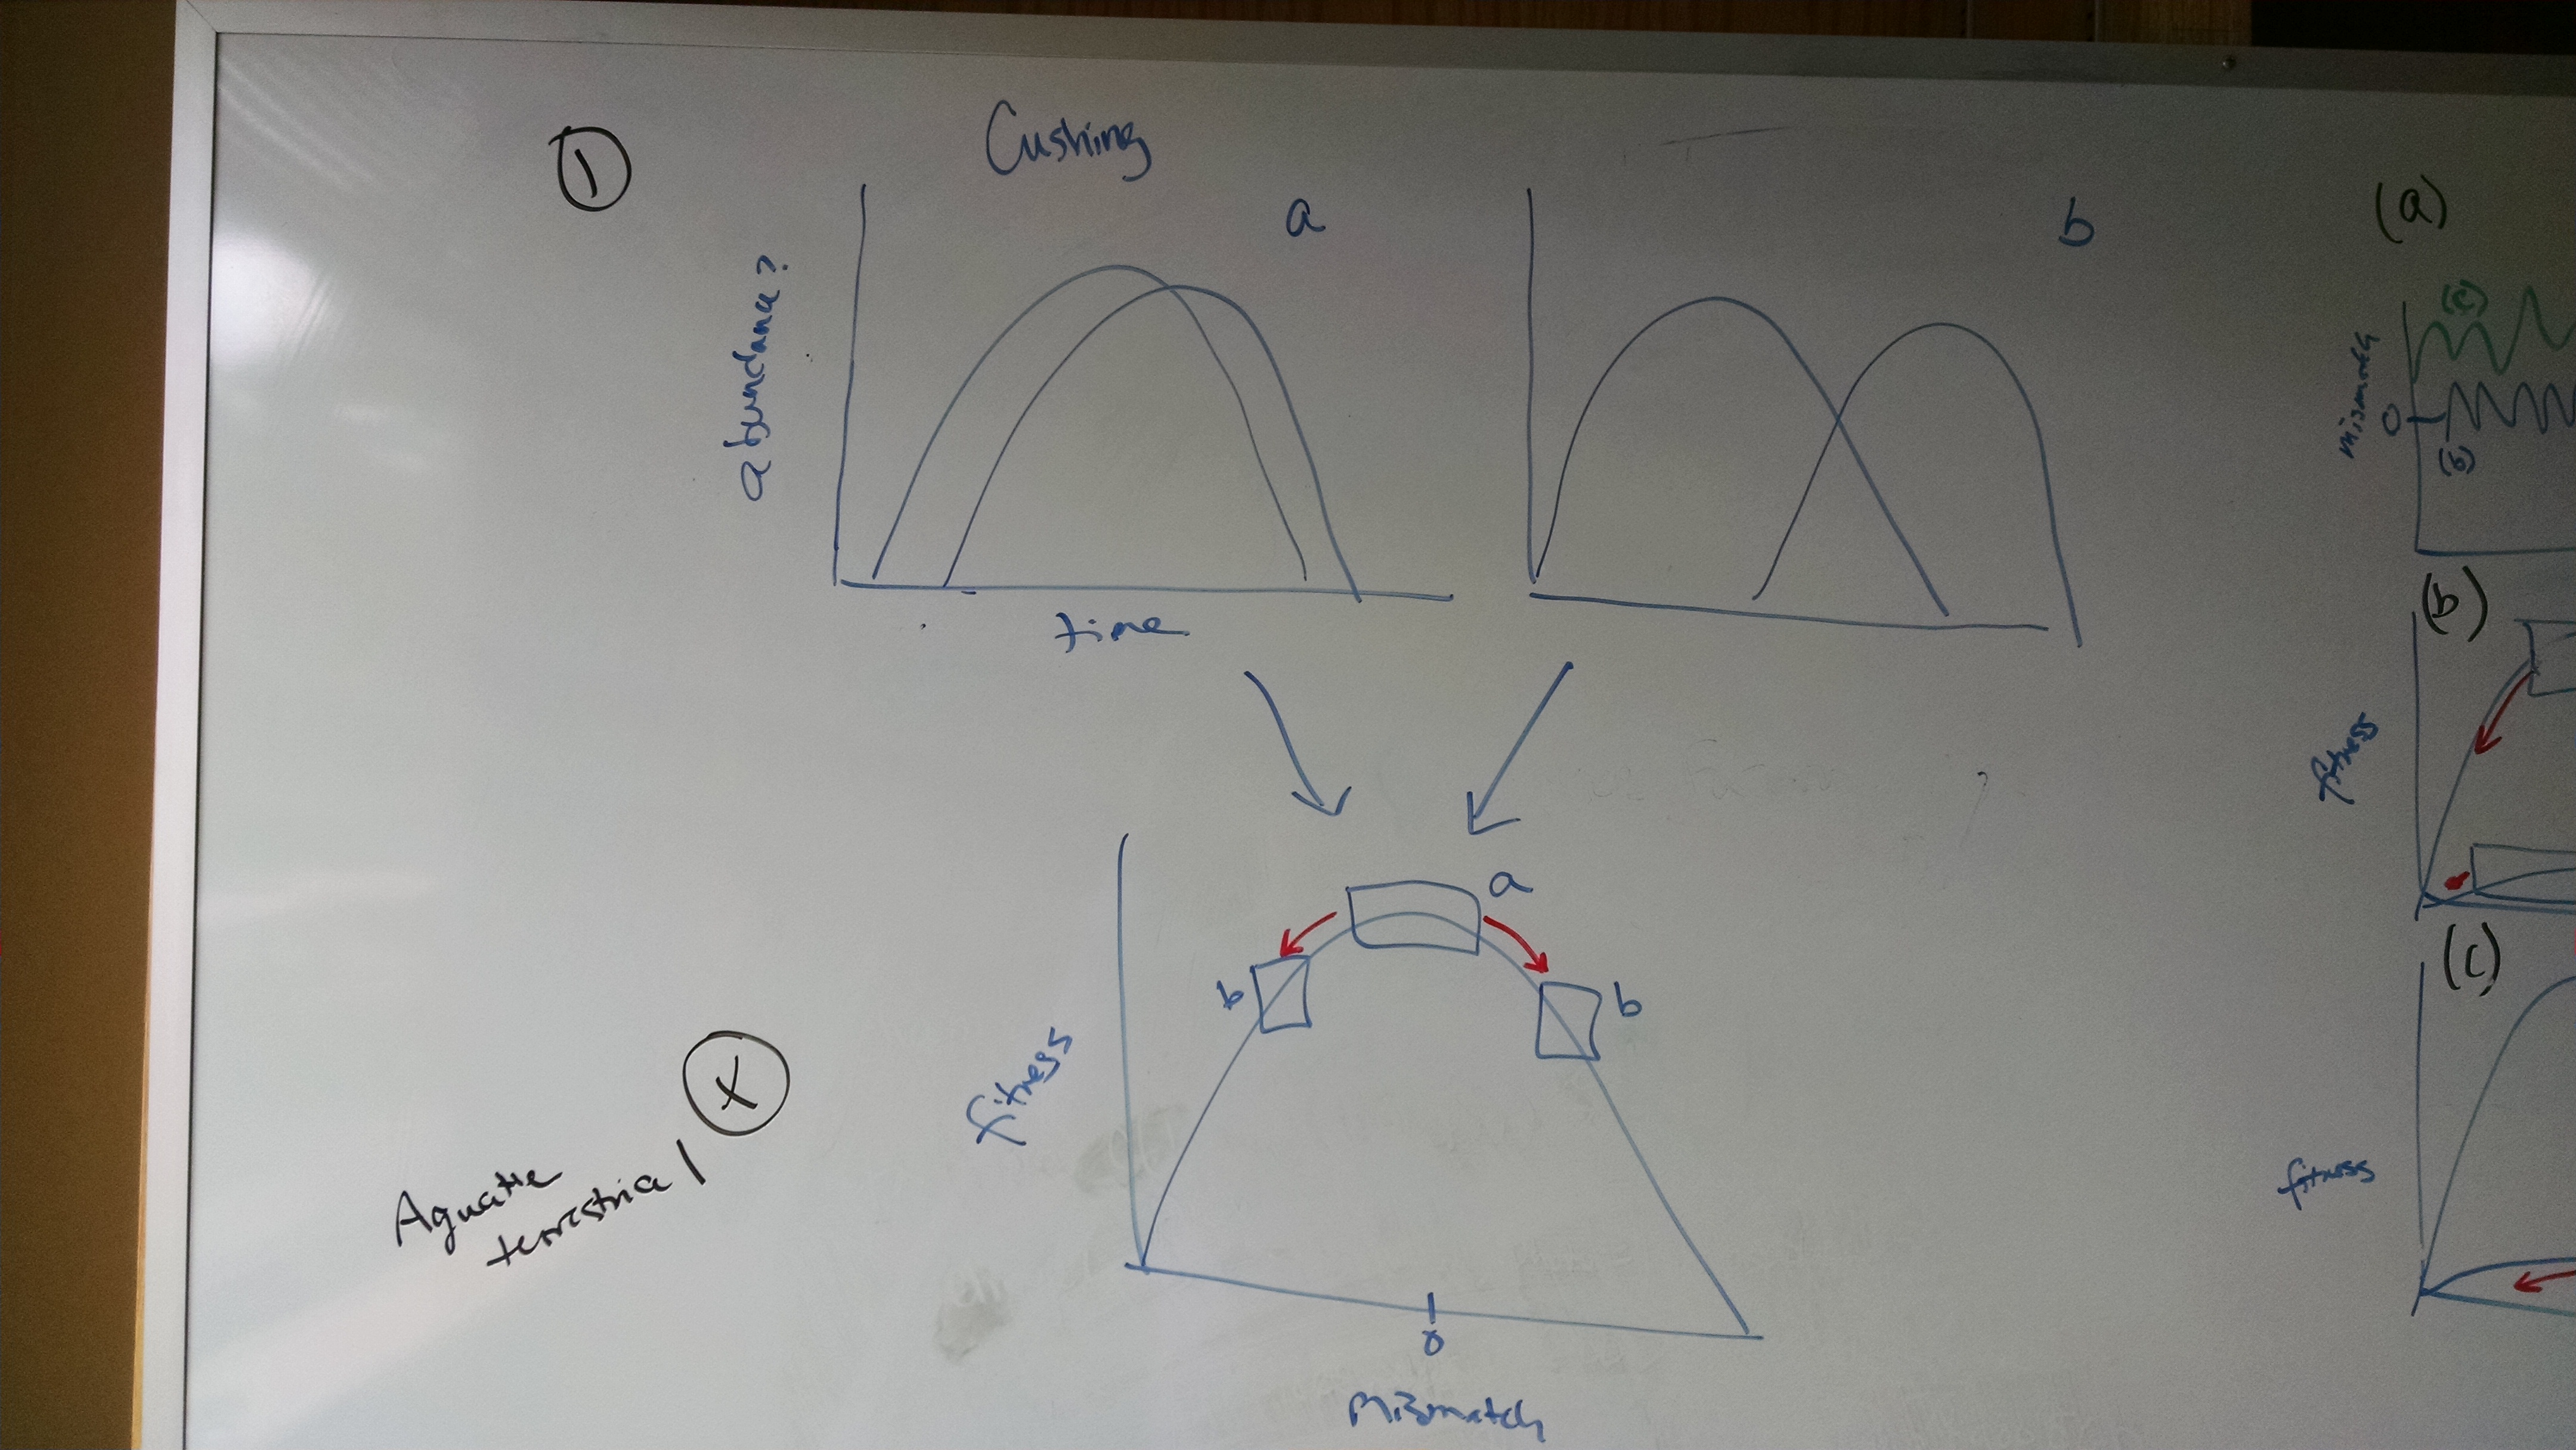 1
Cushing
a
b
abundance?
time
a
b
b
fitness
0
Mismatch
X
Aquatic
terrestrial
(a)
mismatch
(a)
0
(b)
(b)
fitness
(c)
fitness